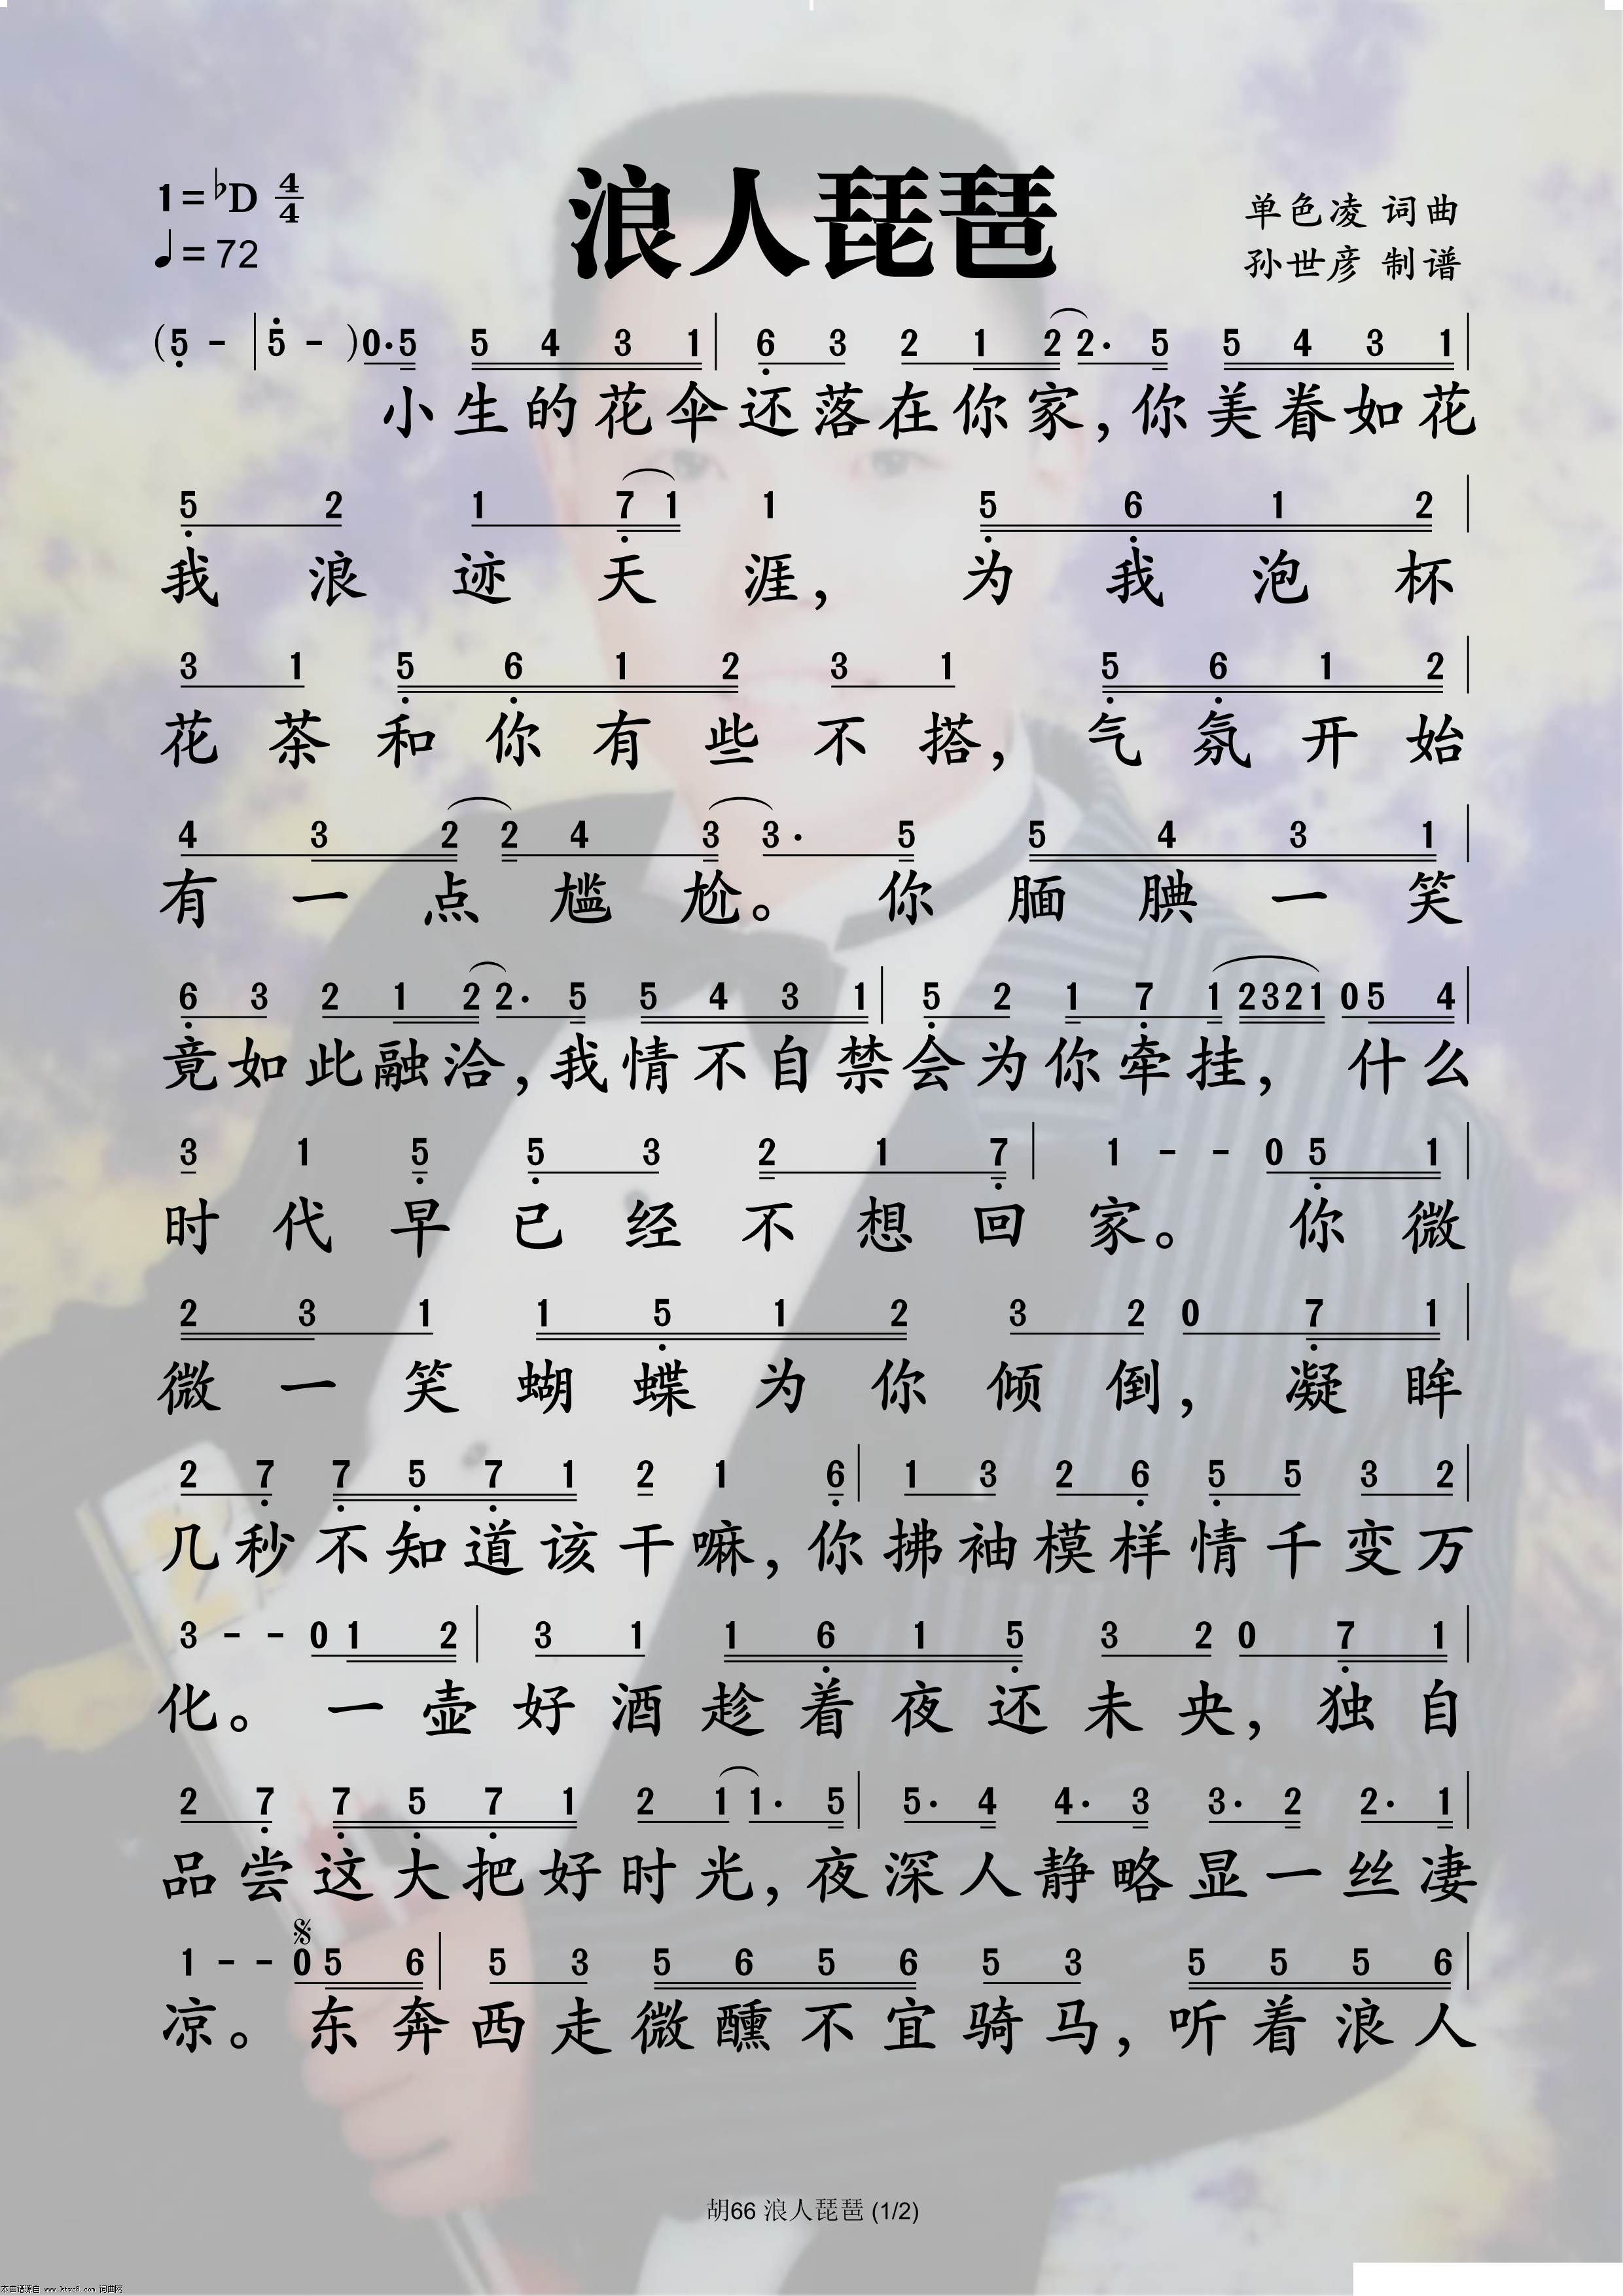 浪人琵琶
1=♭D 4/4
♩=72
单色凌 词曲
孙世彦 制谱
(5 - | 5 - ) 0· 5 5 4 3 1 | 6 3 2 1 2 2· 5 5 4 3 1 |
小生的花伞还落在你家，你美眷如花
5 2 1 7 1 1 5 6 1 2 |
我浪迹天涯，为我泡杯
3 1 5 6 1 2 3 1 5 6 1 2 |
花茶和你有些不搭，气氛开始
4 3 2 2 4 3 3· 5 5 4 3 1 |
有一点尴尬。你腼腆一笑
6 3 2 1 2 2· 5 5 4 3 1 | 5 2 1 7 1 2321 0 5 4 |
竟如此融洽，我情不自禁会为你牵挂，什么
3 1 5 5 3 2 1 7 | 1 - - 0 5 1 |
时代早已经不想回家。你微
2 3 1 1 5 1 2 3 2 0 7 1 |
微一笑蝴蝶为你倾倒，凝眸
2 7 7 5 7 1 2 1 6 | 1 3 2 6 5 5 3 2 |
几秒不知道该干嘛，你拂袖模样情千变万
3 - - 0 1 2 | 3 1 1 6 1 5 3 2 0 7 1 |
化。一壶好酒趁着夜还未央，独自
2 7 7 5 7 1 2 1 1· 5 | 5· 4 4· 3 3· 2 2· 1 |
品尝这大把好时光，夜深人静略显一丝凄
1 - - 0 5 6 | 5 3 5 6 5 6 5 3 5 5 5 6 |
凉。东奔西走微醺不宜骑马，听着浪人
胡66 浪人琵琶 (1/2)
本曲谱源自 www.ktvc8.com 词曲网